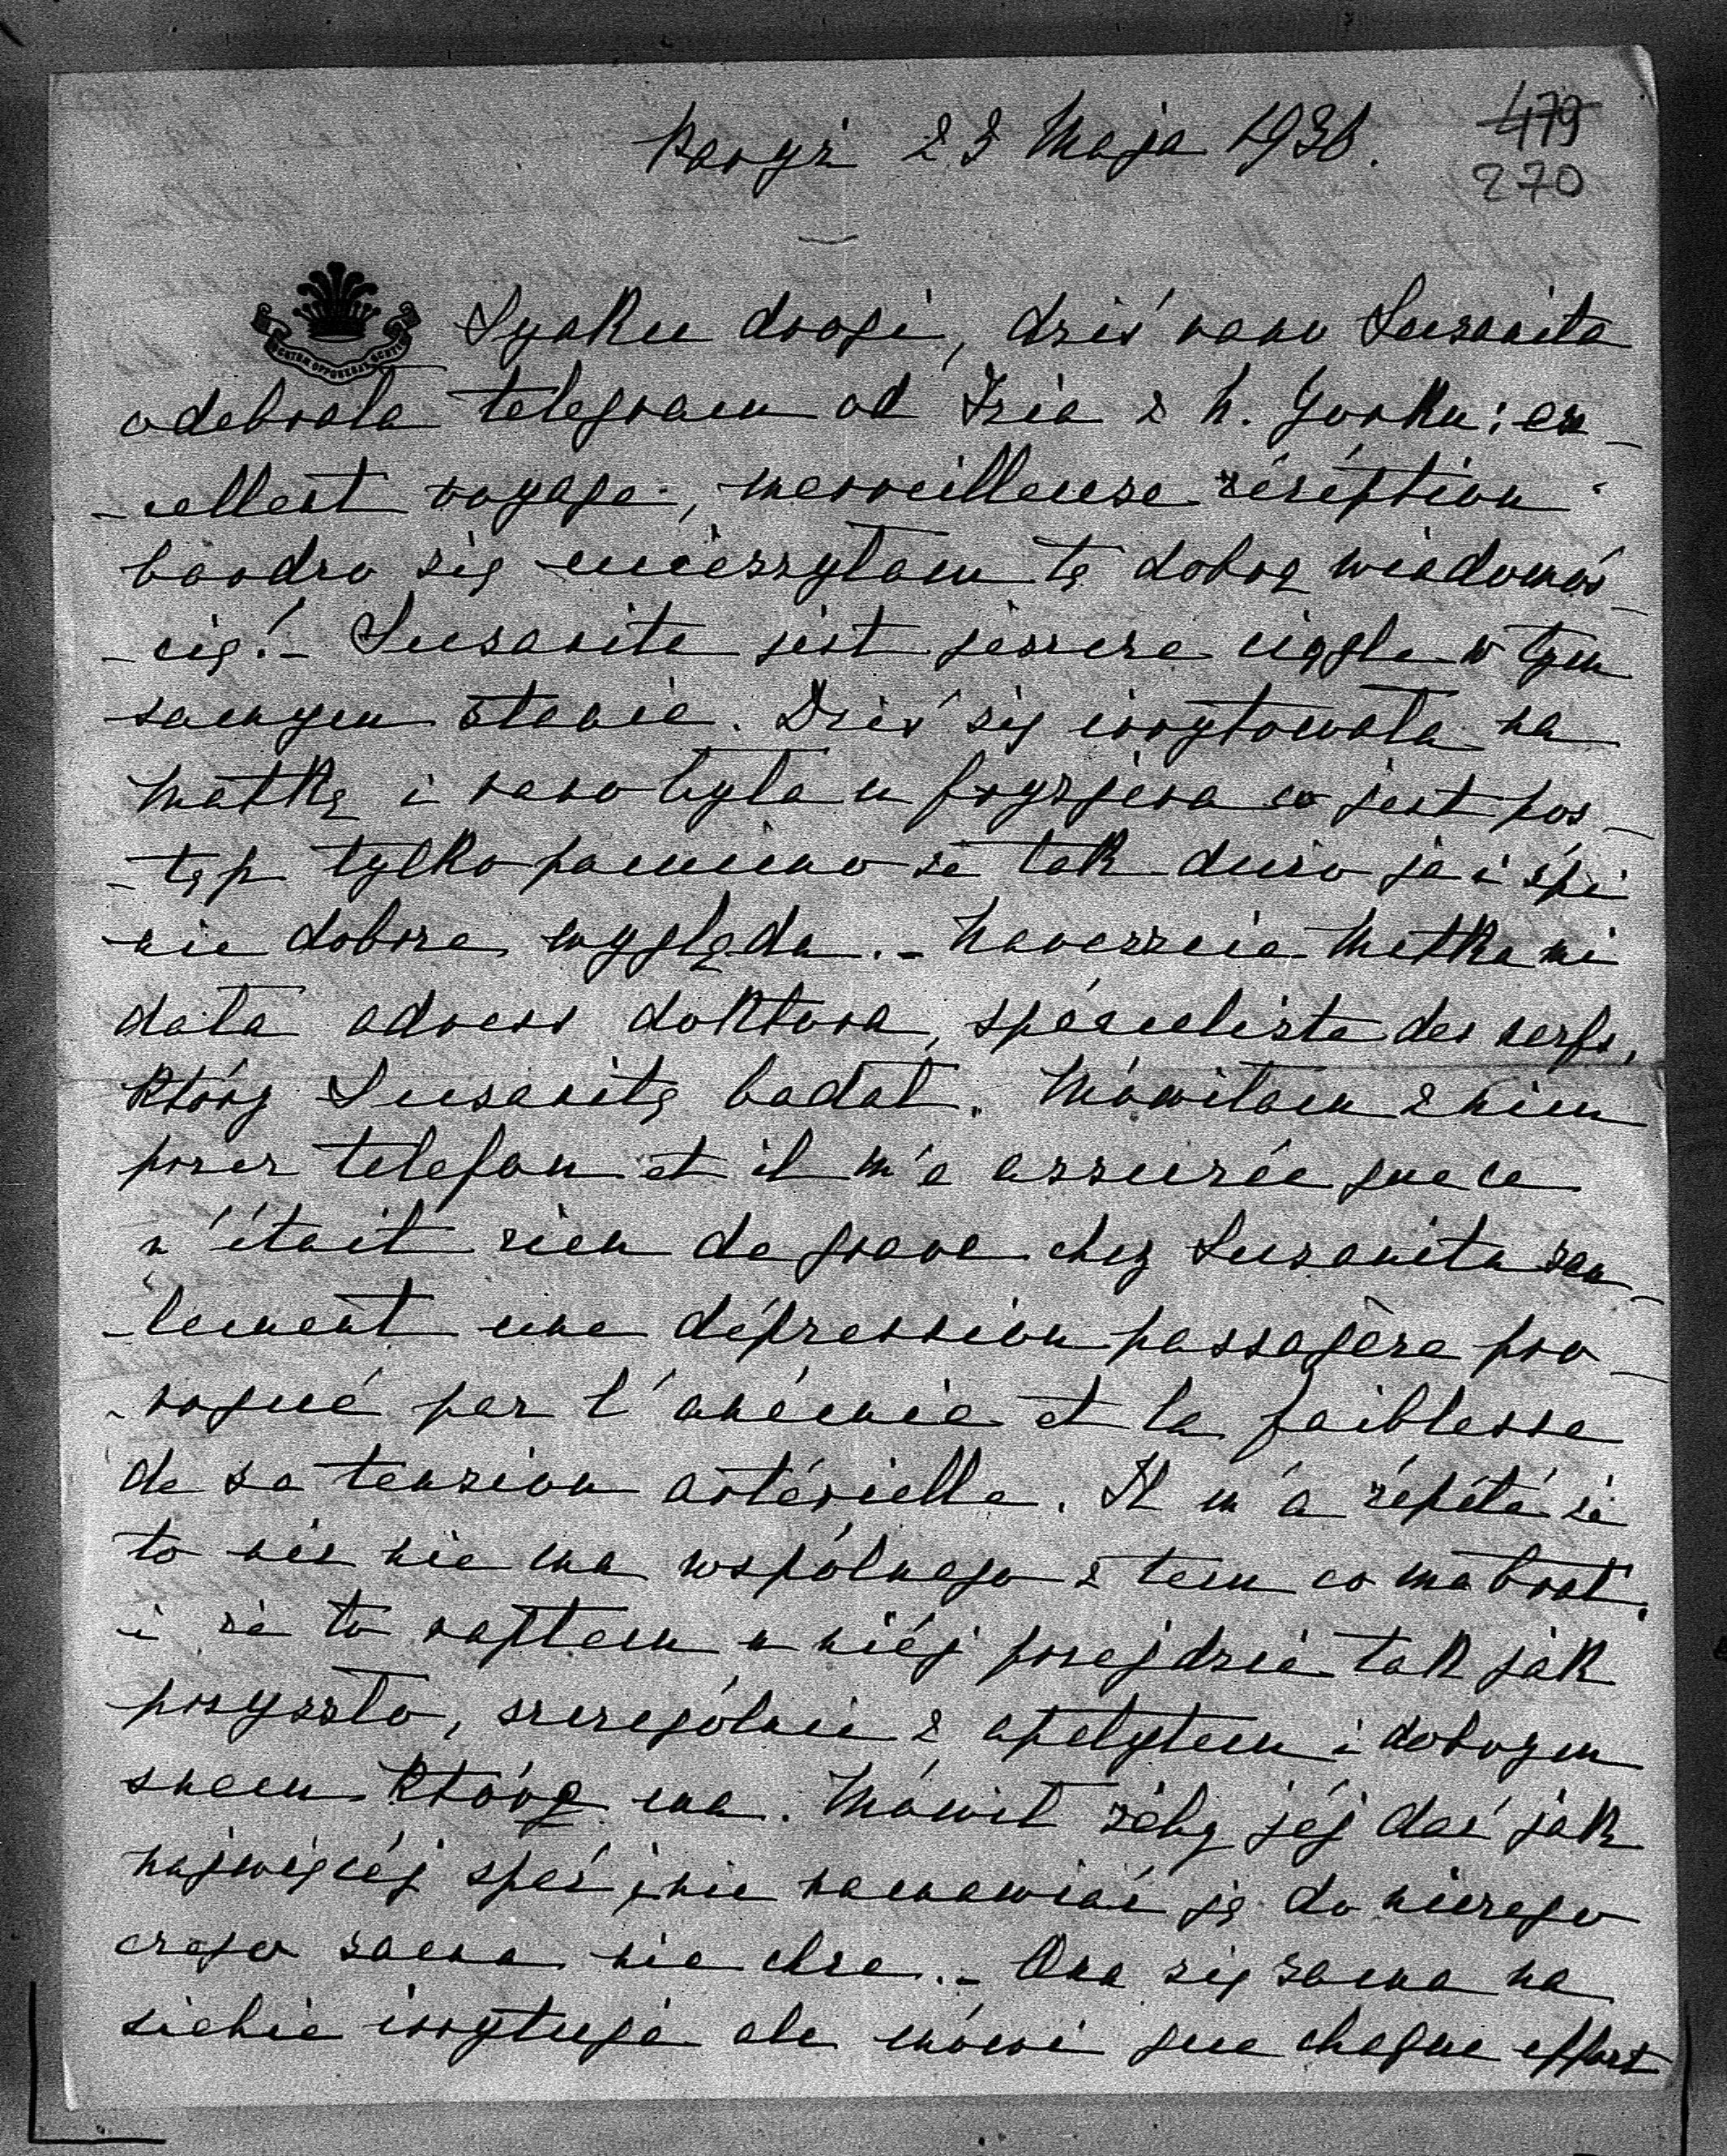 Paryż 23 Maja 1938.
479
270
SCUTUM OPPONEBAT SCUTIS
Synku drogi, dziś rano Susanita
odebrała telegram od Izia z N. Yorku: ex-
-cellent voyage, merveilleuse réséption
bardzo się ucieszyłam tą dobrą wiadomoś-
-cią! - Susanita jest jeszcze ciągle w tym
samym stanie. Dziś się irrytowała na
Matkę i rano była u fryzjera co jest pos-
-tęp tylko pomimo że tak dużo je i śpi
nie dobrze wygląda. - Nareszcie Matka mi
dała adress doktora, spécialiste des nerfs,
który Susanitę badał. Mówiłam z nim
przez telefon et il m'a assurée que ce
n'était rien de grave chez Susanita seu-
-lement une dépression passagère pro-
-voqué par l'anémie et la faiblesse
de sa tension artérielle. Il m'a répété że
to nic nie ma wspólnego z tem co ma brat.
i że to raptem u niéj przejdzie tak jak
przyszło, szczególnie z apetytem i dobrym
snem który ma. Mówił żeby jéj dać jak
najwięcéj spać i nie namawiać ją do niczego
czego sama nie chce. - Ona się sama na
siebie irrytuje ale mówi que chaque effort